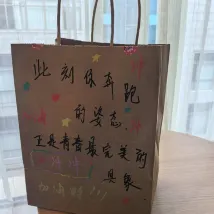 此刻你奔跑
的姿态，
正是青春最完美的
具象
加油呀!!!